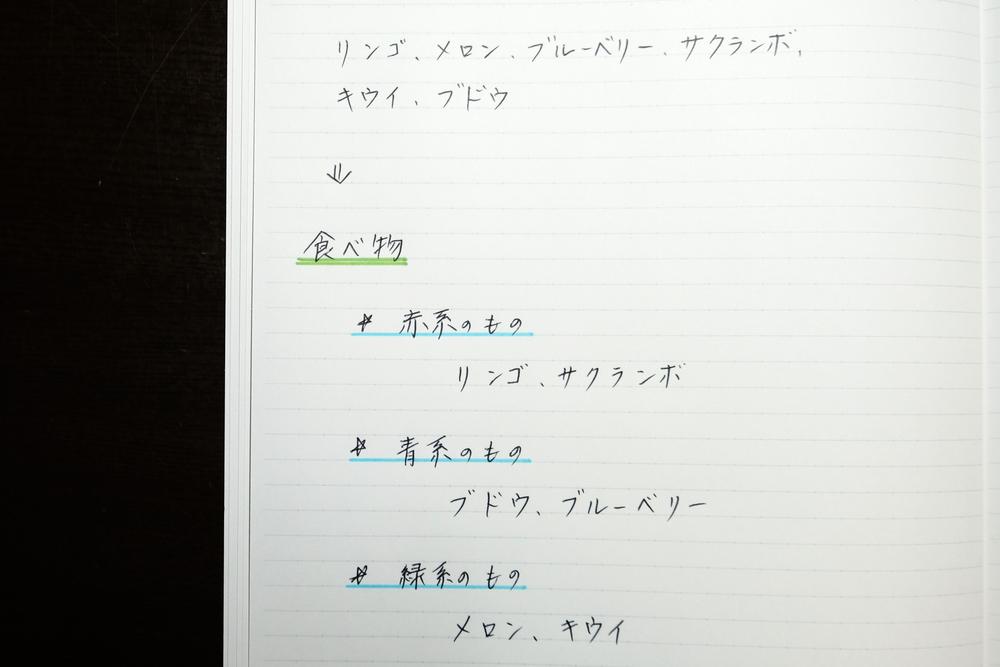 リンゴ、メロン、ブルーベリー、サクランボ、
キウイ、ブドウ
↓
食べ物
☆ 赤系のもの
リンゴ、サクランボ
☆ 青系のもの
ブドウ、ブルーベリー
☆ 緑系のもの
メロン、キウイ